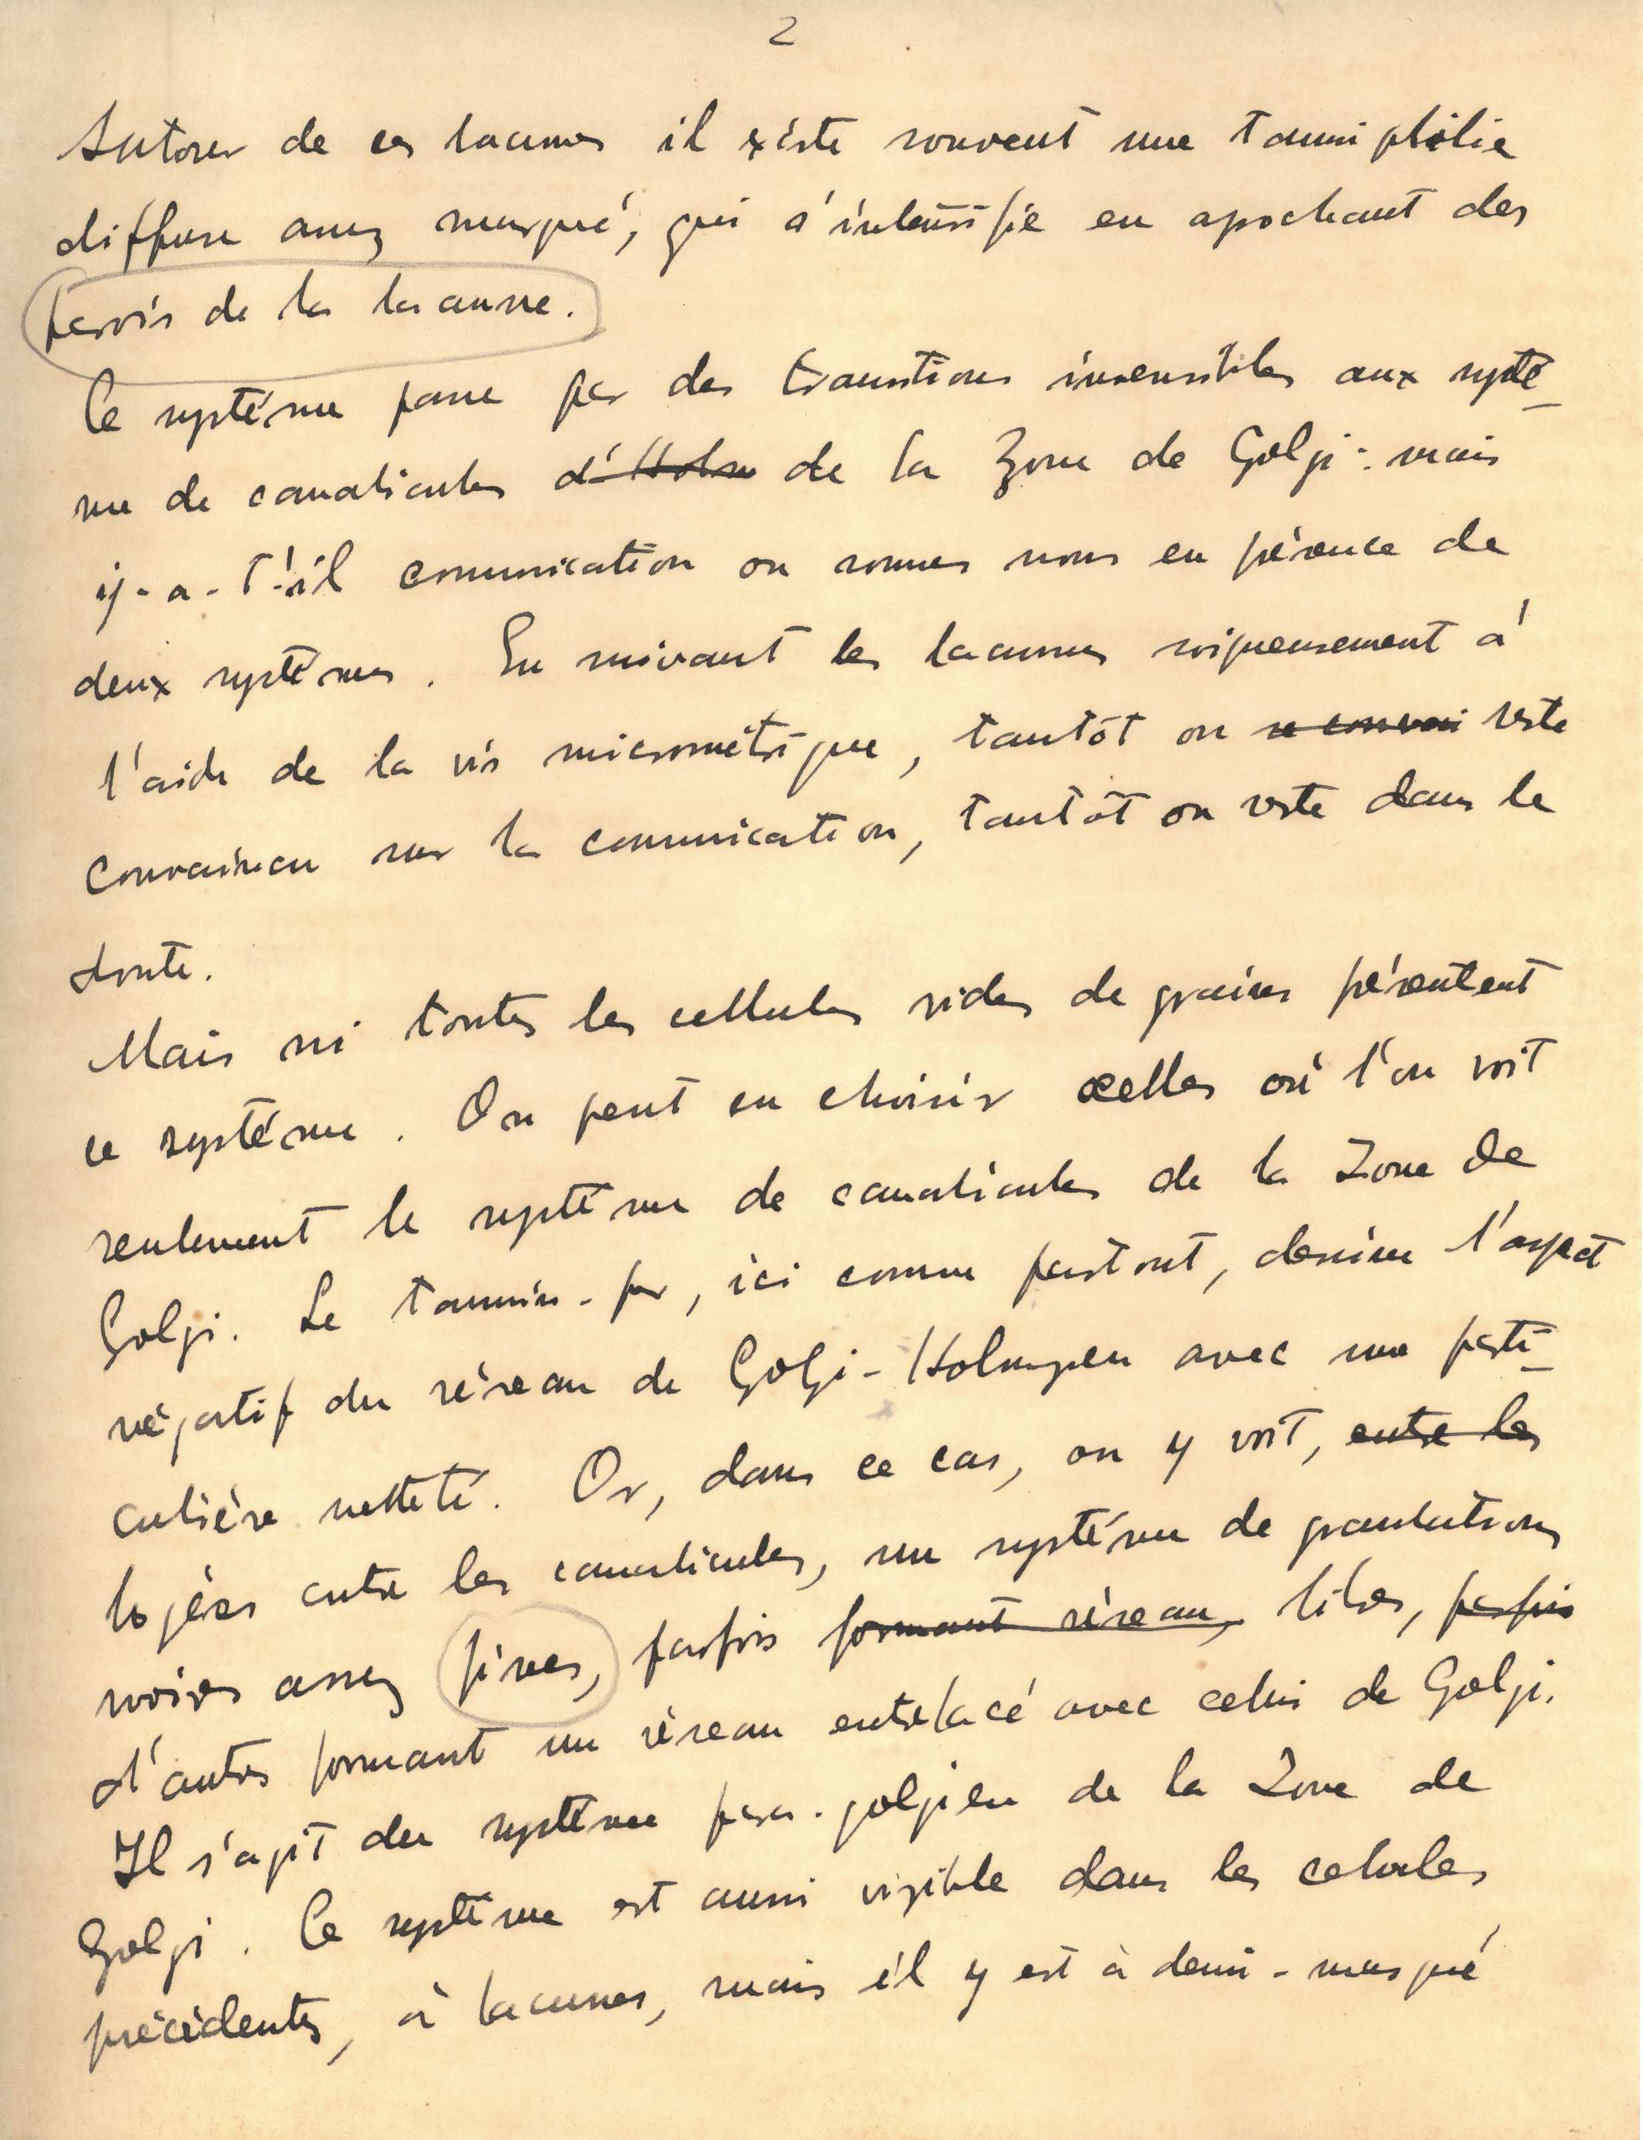 2
Autour de ces lacunes il existe souvent une tanniphilie
diffuse assez marqué, qui s'intensifie en aprochant des
parois de la lacunne.
Ce systéme passe par des transitions insensibles aux systé-
me de canalicules d'Holm de la zone de Golgi: mais
ij-a-t'-il comunication ou sommes nous en présence de
deux systémes. En suivant les lacunes soigneusement á
l'aide de la vis micrométrique, tantôt on se convai reste
convaincu sur la comunication, tantôt on reste dans le
doute.
Mais ni toutes les cellules vides de grains présentent
ce systéme. On peut en choisir celles oú l'on voit
seulement le systéme de canalicules de la zone de
Golgi. Le tannin-fer, ici comme partout, dessine l'aspect
négatif du réseau de Golgi-Holmgren avec une parti-
culière netteté. Or, dans ce cas, on y voit, entre les
logées entre les canalicules, un systéme de granulations
noires assez fines, parfois formant réseau, libres, parfois
d'autres formant un réseau entrelacé avec celui de Golgi.
Il s'agit du systéme para-golgien de la zone de
Golgi. Ce systéme est aussi visible dans les celules
précédentes, à lacunes, mais il y est à demi-masqué